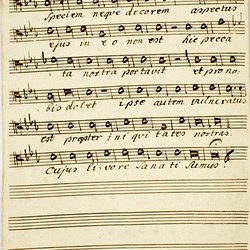 Speciem neque decorem aspectus
ejus in eo non est hic pecca
ta nostra portavit et pro no
bis dolet ipse autem vulneratus
est propter ini qui tates nostras.
Cujus li: vore Sana ti Sumus.